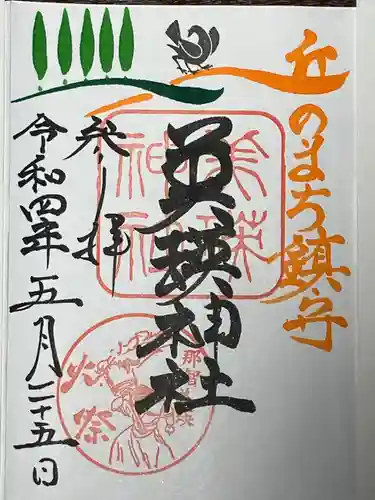 丘のまち鎮守
美瑛神社
奉拝
令和四年五月二十五日
美瑛
神社
火祭